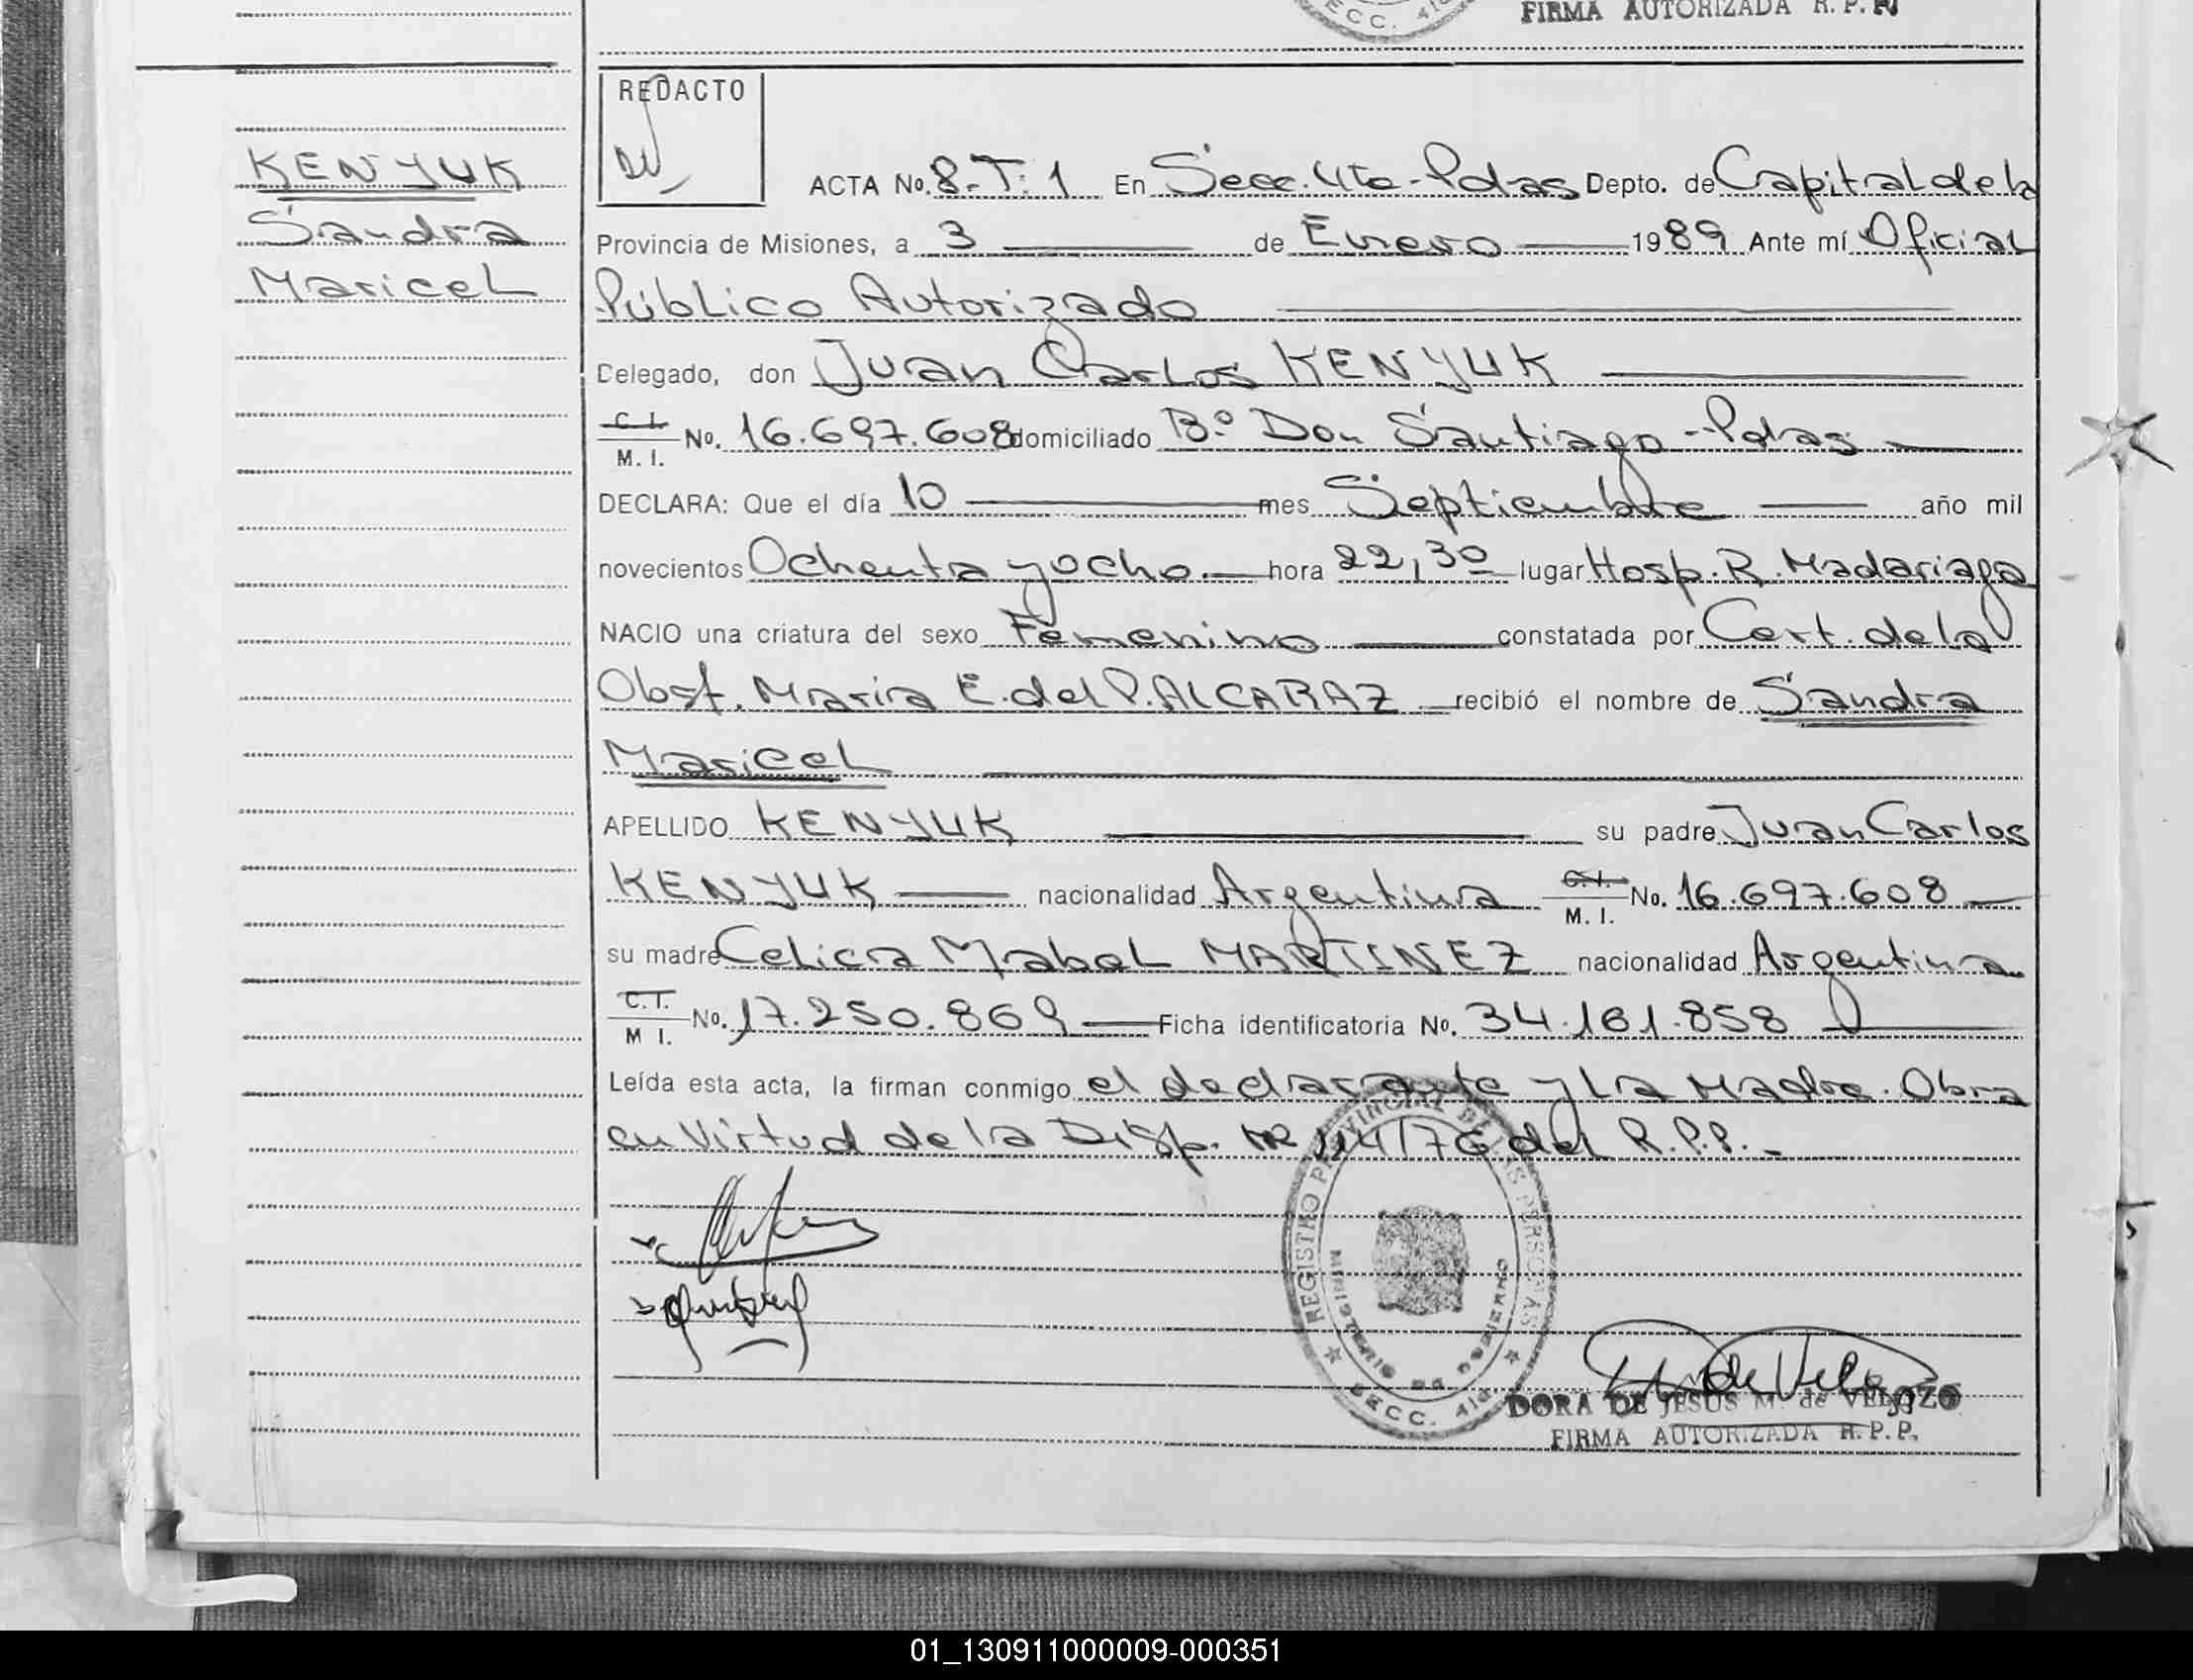 SECC. 4ta
FIRMA AUTORIZADA R. P. P.
REDACTO
KENYUK
Sandra
Maricel
ACTA No. 8-T: 1 En Secc. 4ta - Pdas Depto. de Capital de la
Provincia de Misiones, a 3 de Enero 1989 Ante mí Oficial
Público Autorizado
Delegado, don Juan Carlos KENYUK
C. I.
M. I. No. 16.697.608 domiciliado B.º Don Santiago - Pdas
DECLARA: Que el día 10 mes Septiembre año mil
novecientos Ochenta y ocho. hora 22,30 lugar Hosp. R. Madariaga
NACIO una criatura del sexo Femenino constatada por Cert. de la
Obst. Maria E. del P. ALCARAZ recibió el nombre de Sandra
Maricel
APELLIDO KENYUK su padre Juan Carlos
KENYUK nacionalidad Argentina C.I.
M. I. No. 16.697.608
su madre Celica Mabel MARTINEZ nacionalidad Argentina
C.I.
M I. No. 17.250.869 Ficha identificatoria No. 34.161.858
Leída esta acta, la firman conmigo el declarante y La Madre. Obra
en Virtud de la Disp. Nº 114/76 del R.P.P.-
REGISTRO PROVINCIAL DE LAS PERSONAS
MINISTERIO DE GOBIERNO
SECC. 4ta
DORA DE JESUS M. de VELOZO
FIRMA AUTORIZADA R. P. P.
01_130911000009-000351